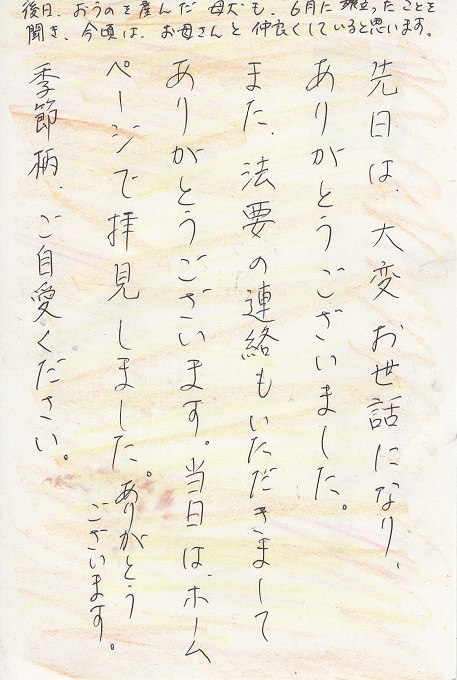 後日、おうのを産んだ母犬も、6月に旅立ったことを
聞き、今頃は、お母さんと仲良くしていると思います。
先日は、大変お世話になり、
ありがとうございました。
また、法要の連絡もいただきまして
ありがとうございます。当日は、ホーム
ページで拝見しました。ありがとう
ございます。
季節柄、ご自愛ください。